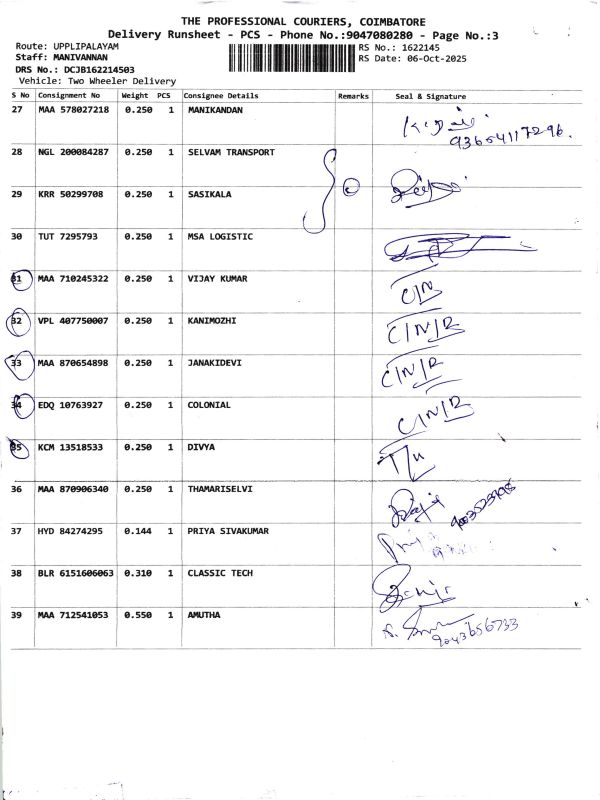 THE PROFESSIONAL COURIERS, COIMBATORE
Delivery Runsheet - PCS - Phone No.:9047080280 - Page No.:3
Route: UPPLIPALAYAM
RS No.: 1622145
Staff: MANIVANNAN
RS Date: 06-Oct-2025
DRS No.: DCJB162214503
Vehicle: Two Wheeler Delivery
S No Consignment No Weight PCS Consignee Details Remarks Seal & Signature
27 MAA 578027218 0.250 1 MANIKANDAN
28 NGL 200084287 0.250 1 SELVAM TRANSPORT
29 KRR 50299708 0.250 1 SASIKALA
30 TUT 7295793 0.250 1 MSA LOGISTIC
31 MAA 710245322 0.250 1 VIJAY KUMAR
32 VPL 407750007 0.250 1 KANIMOZHI C/N/R
33 MAA 870654898 0.250 1 JANAKIDEVI C/N/R
34 EDQ 10763927 0.250 1 COLONIAL C/N/R
35 KCM 13518533 0.250 1 DIVYA
36 MAA 870906340 0.250 1 THAMARISELVI
37 HYD 84274295 0.144 1 PRIYA SIVAKUMAR Priya
38 BLR 6151606063 0.310 1 CLASSIC TECH
39 MAA 712541053 0.550 1 AMUTHA
9043656733